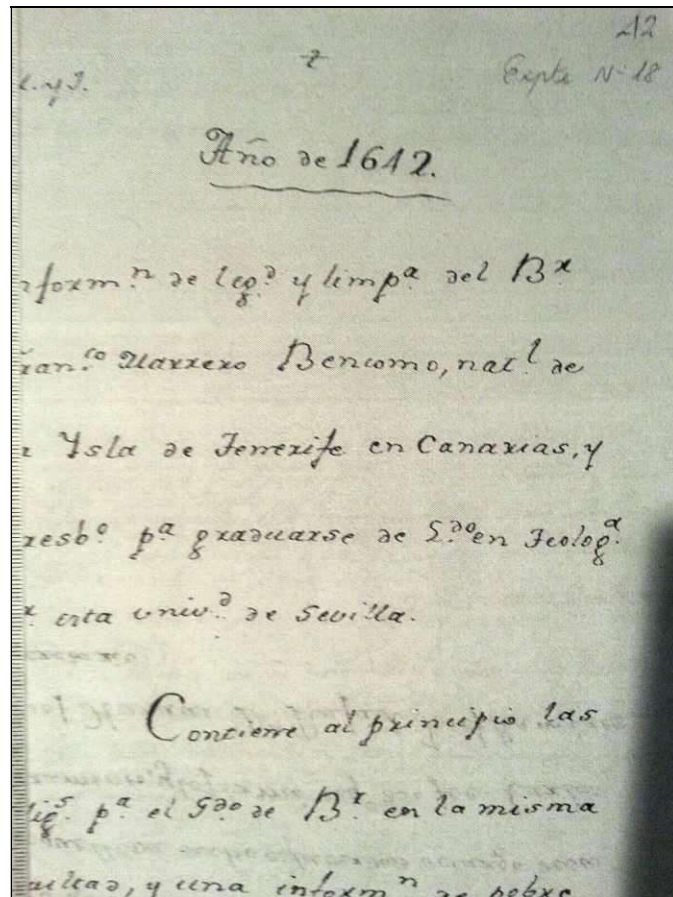 42
Expte Nº 18
L. y J.
Año de 1642.
nform.ⁿ de leg.ᵈ y limp.ᵃ del B.ʳ
ran.ᶜᵒ Marrero Bencomo, nat.ˡ de
Ysla de Tenerife en Canarias, y
resb.º p.ᵃ graduarse de L.ᵈᵒ en Teolog.ᵃ
r esta univ.ᵈ de Sevilla.
Contiene al principio las
lig.ˢ p.ᵃ el G.ᵈᵒ de B.ʳ en la misma
cultad, y una inform.ⁿ de pobre